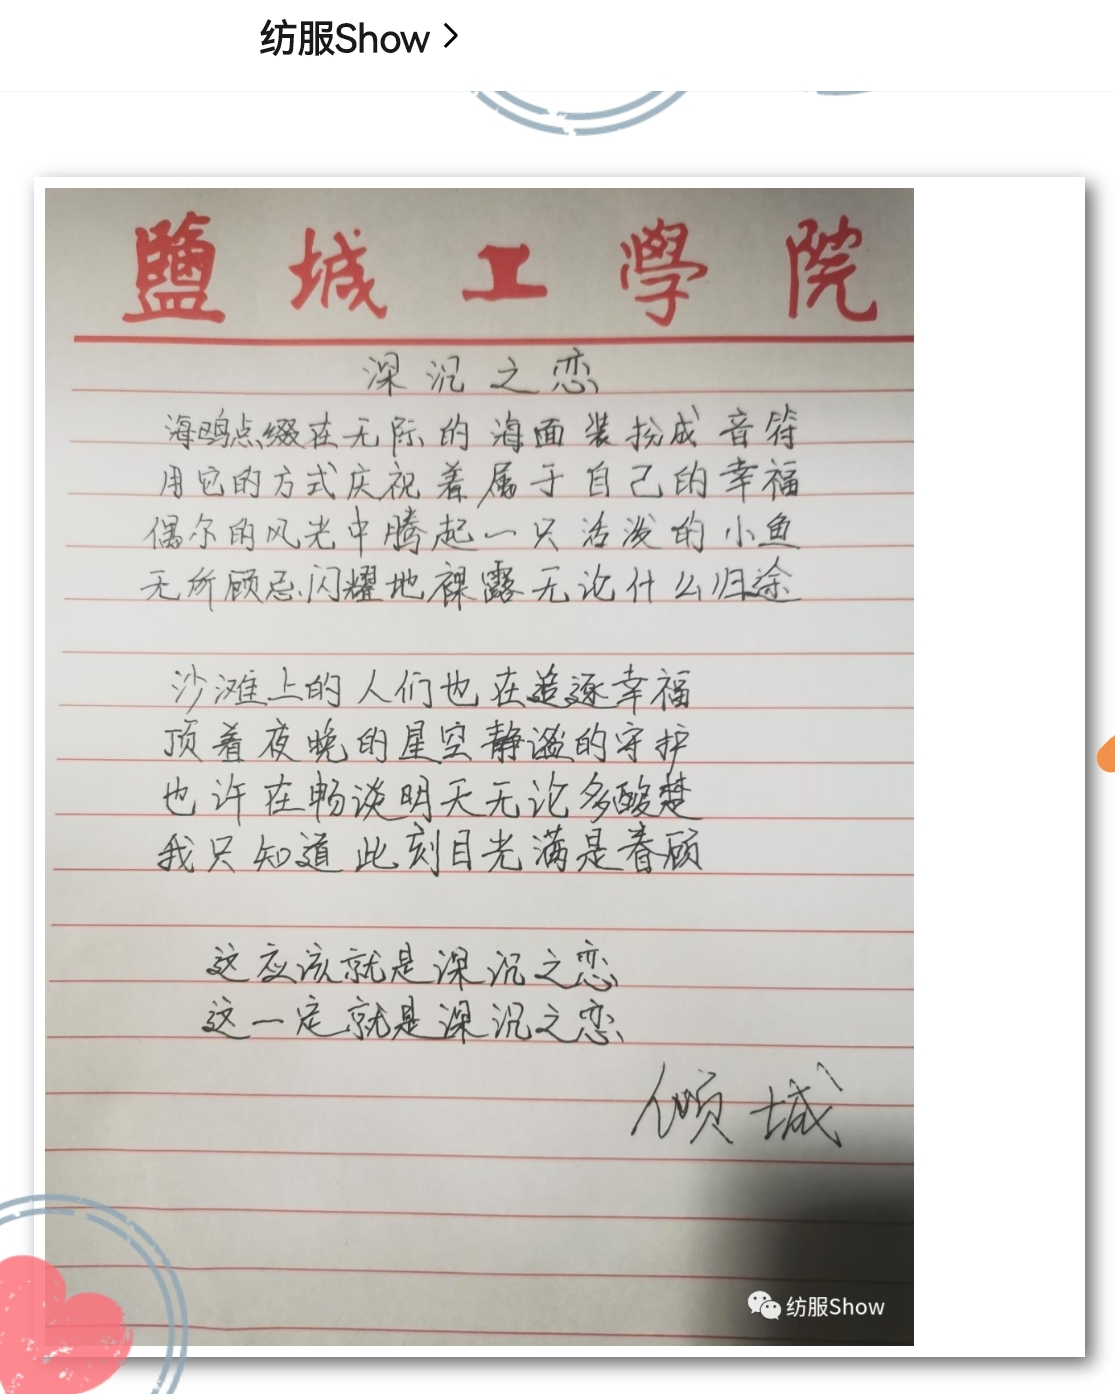 纺服Show
鹽城工學院
深沉之恋
海鸥点缀在无际的海面装扮成音符
用它的方式庆祝着属于自己的幸福
偶尔的风光中腾起一只活泼的小鱼
无所顾忌闪耀地裸露无论什么归途
沙滩上的人们也在追逐幸福
顶着夜晚的星空静谧的守护
也许在畅谈明天无论多酸楚
我只知道此刻目光满是眷顾
这应该就是深沉之恋
这一定就是深沉之恋
倾城
纺服Show